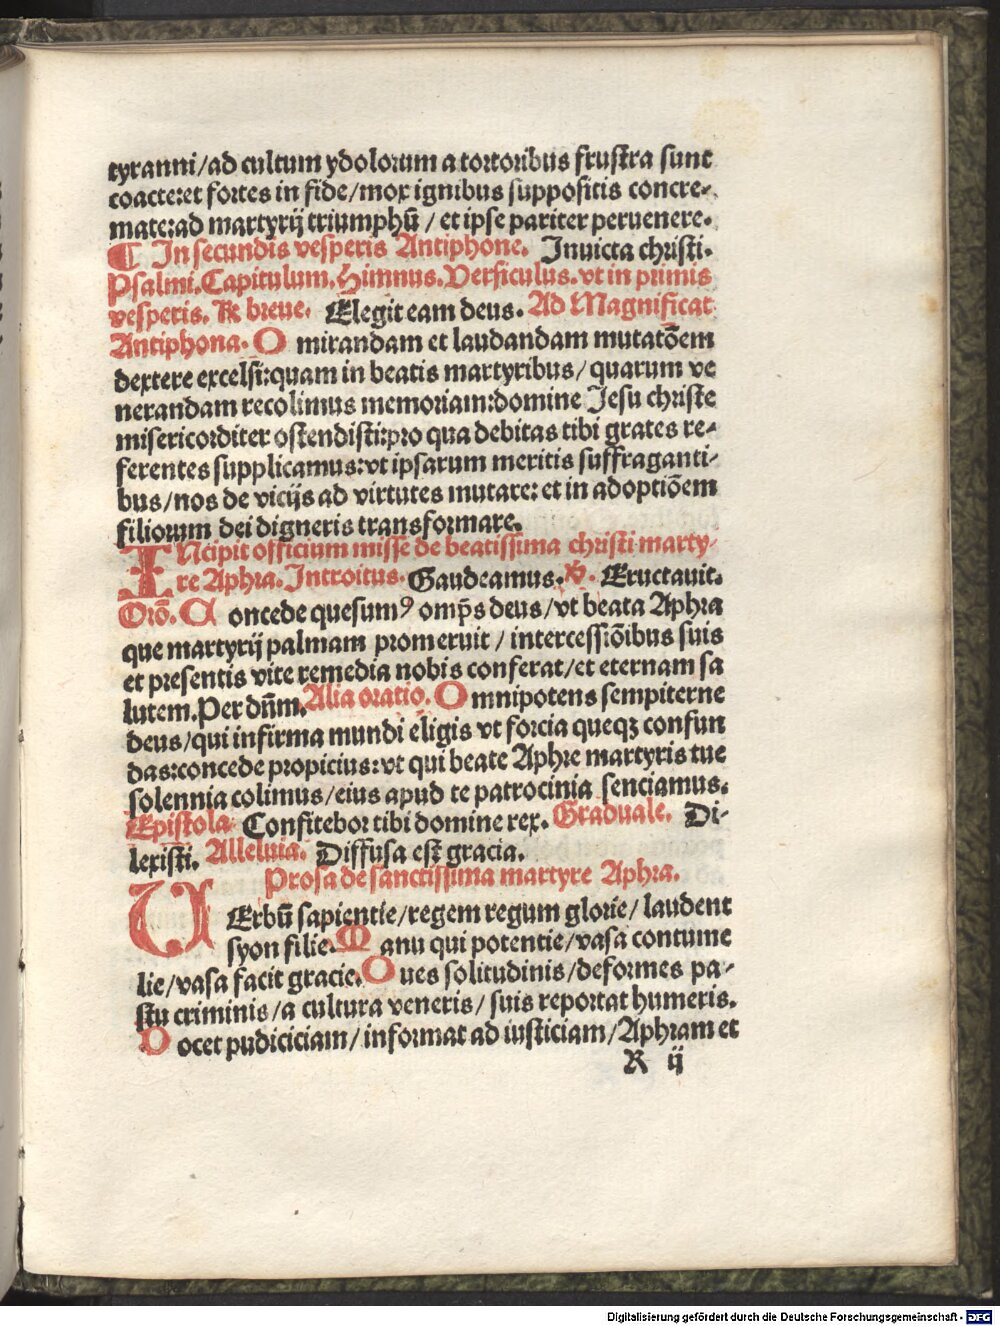 tyranni/ad cultum ydolorum a tortoribus frustra sunt
coacte:et fortes in fide/mox ignibus suppositis concre-
mate:ad martyrij triumphū/et ipse pariter peruenere.
¶ In secundis vesperis Antiphone. Inuicta christi.
Psalmi.Capitulum.Himnus.Versiculus.vt in primis
vesperis. ℟ breue. Elegit eam deus. Ad Magnificat
Antiphona. O mirandam et laudandam mutatōem
dextere excelsi:quam in beatis martyribus/quarum ve
nerandam recolimus memoriam:domine Jesu christe
misericorditer ostendisti:pro qua debitas tibi grates re-
ferentes supplicamus:vt ipsarum meritis suffraganti-
bus/nos de vicijs ad virtutes mutare: et in adoptiōem
filiorum dei digneris transformare.
INcipit officium misse de beatissima christi marty-
re Aphra.Introitus. Gaudeamus. ℣. Eructauit.
Orō. Concede quesumꝰ omp̄s deus/vt beata Aphra
que martyrij palmam promeruit/intercessiōibus suis
et presentis vite remedia nobis conferat/et eternam sa
lutem.Per dn̄m.Alia oratio. Omnipotens sempiterne
deus/qui infirma mundi eligis vt forcia queqꝫ confun
das:concede propicius:vt qui beate Aphre martyris tue
solennia colimus/eius apud te patrocinia senciamus.
Epistola Confitebor tibi domine rex. Graduale. Di-
lexisti. Alleluia. Diffusa est gracia.
Prosa de sanctissima martyre Aphra.
VErbū sapientie/regem regum glorie/laudent
syon filie.Manu qui potentie/vasa contume
lie/vasa facit gracie.Oues solitudinis/deformes pa-
stu criminis/a cultura veneris/suis reportat humeris.
Docet pudiciciam/informat ad iusticiam/Aphram et
R ij
Digitalisierung gefördert durch die Deutsche Forschungsgemeinschaft - DFG